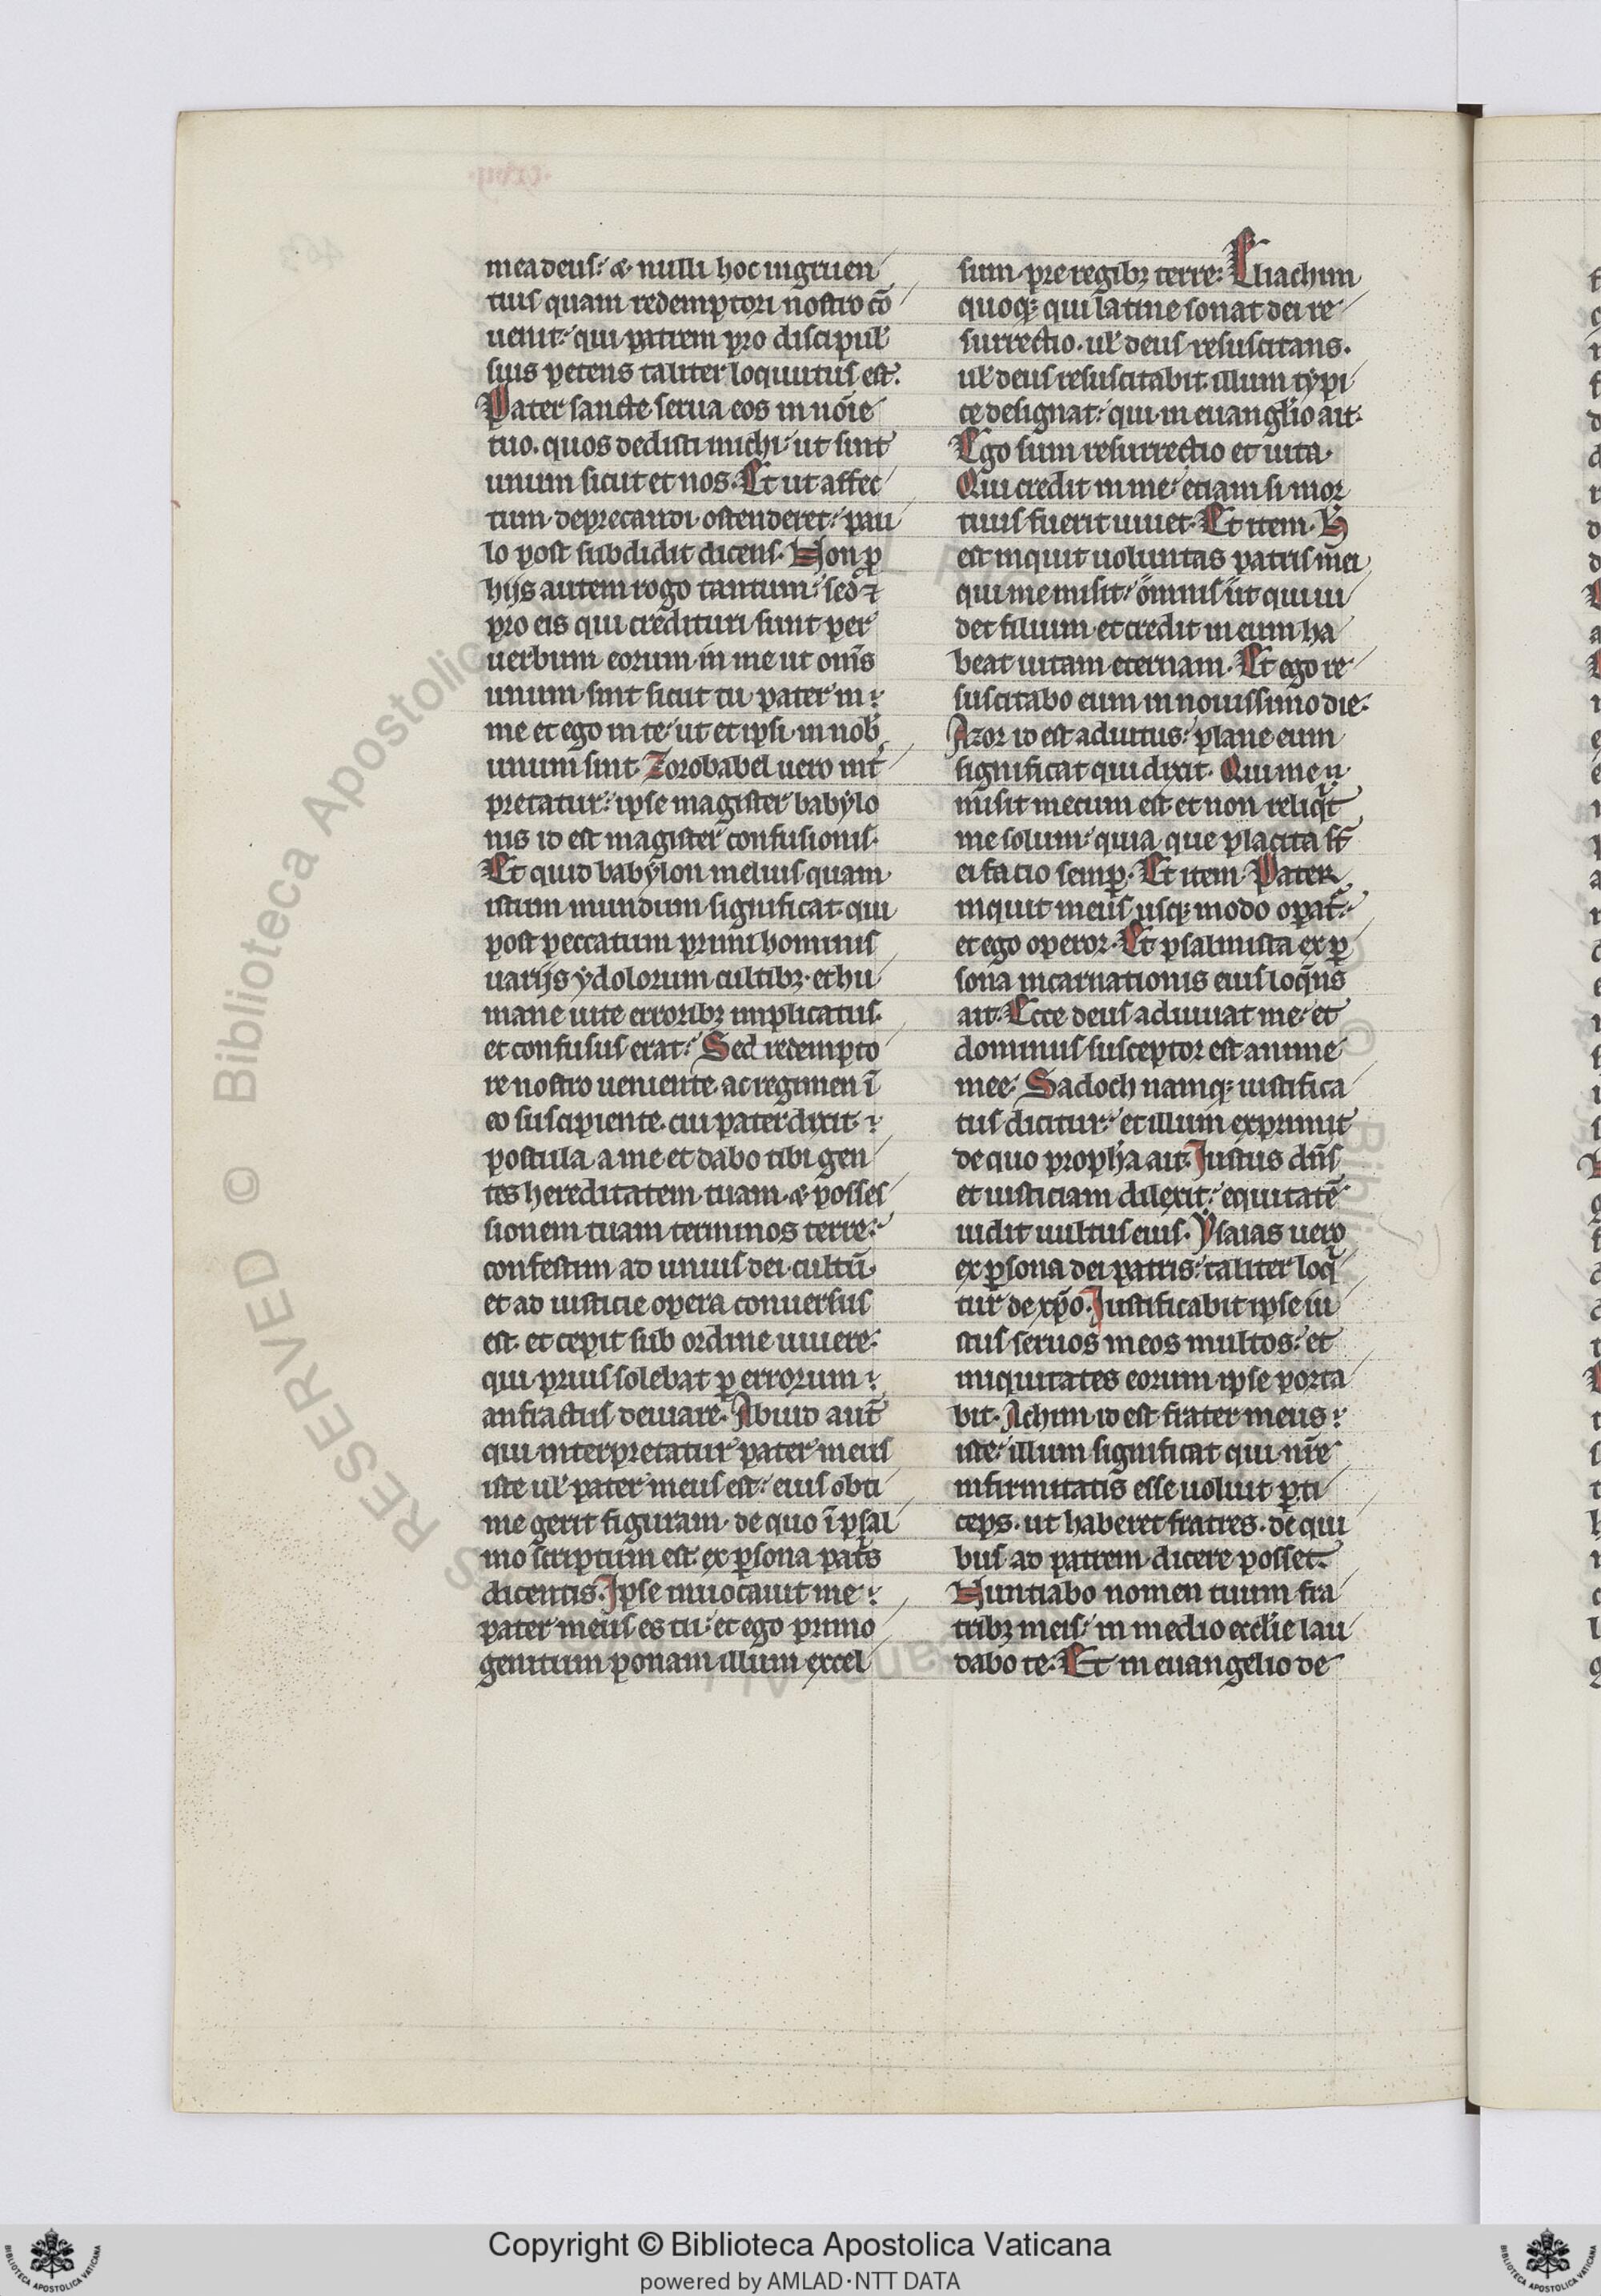 mea deus: & nulli hoc ingruen
tius quam redemptori nostro cō
uenit: qui patrem pro discipul̓
suis petens taliter loquutus est.
Pater sancte serua eos in noīe
tuo. quos dedisti michi: ut sint
unum sicut et nos. Et ut affec
tum deprecandi ostenderet: pau
lo post subdidit dicens. Non ꝓ
hijs autem rogo tantum: sed ⁊
pro eis qui credituri sunt per
uerbum eorum in me ut om̄s
unum sint sicut tu pater in
me et ego in te: ut et ipsi in nob̓
unum sint. Zorobabel uero int̓
pretatur: ipse magister babylo
nis id est magister confusionis.
Et quid babylon melius quam
istum mundum significat. qui
post peccatum primi hominis
uarijs ydolorum cultibꝫ et hu
mane uite erroribꝫ implicatus.
et confusus erat: Sed redempto
re nostro ueniente. ac regimen ī
eo suscipiente. cui pater dixit
postula a me et dabo tibi gen
tes hereditatem tuam. & posses
sionem tuam terminos terre:
confestim ad unius dei cultū.
et ad iusticie opera conuersus
est. et cepit sub ordine uiuere:
qui prius solebat ꝑ errorum
anfractus deuiare. Abiud aut̄
qui interpretatur pater meus
iste ul̓ pater meus est: eius obti
me gerit figuram. de quo ī psal
mo scriptum est. ex ꝑsona pat̓s
dicentis. Ipse inuocauit me
pater meus es tu: et ego primo
genitum ponam illum excel
sum pre regibꝫ terre: Eliachim
quoqꝫ qui latine sonat dei re
surrectio. ul̓ deus resuscitans.
ul̓ deus resuscitabit. illum typi
ce designat: qui in euangl̓io ait:
Ego sum resurrectio et uita.
Qui credit in me: etiam si mor
tuus fuerit uiuet. Et item. H̓
est inquit uoluntas patris mei
qui me misit: omnis ut qui ui
det filium et credit in eum ha
beat uitam eternam. Et ego re
suscitabo eum in nouissimo die:
Azor id est adiutus: plane eum
significat qui dixit. Qui me
misit mecum est et non reliqͥt
me solum: quia que placita st̄
ei facio semꝑ. Et item. Pater
inquit meus usqꝫ modo oꝑat̓:
et ego operor. Et psalmista ex ꝑ
sona incarnationis eius loqn̄s
ait. Ecce deus adiuuat me: et
dominus susceptor est anime
mee: Sadoch namqꝫ iustifica
tus dicitur: et illum exprimit
de quo propħa ait. Iustus dn̄s
et iusticiam dilexit: equitatē
uidit uultus eius. Ysaias uero
ex ꝑsona dei patris: taliter loqͥ
tur de xp̄o. Iustificabit ipse iu
stus seruos meos multos: et
iniquitates eorum ipse porta
bit. Achim id est frater meus
iste: illum significat qui nr̄e
infirmitatis esse uoluit ꝑti
ceps. ut haberet fratres. de qui
bus ad patrem dicere posset.
Nuntiabo nomen tuum fra
tribꝫ meis: in medio eccl̓ie lau
dabo te: Et in euangelio de
Copyright © Biblioteca Apostolica Vaticana
powered by AMLAD·NTT DATA